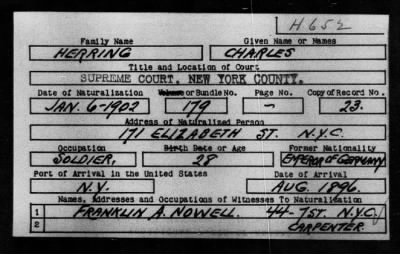 H.652
Family Name Given Name or Names
HERRING CHARLES
Title and Location of Court
SUPREME COURT, NEW YORK COUNTY.
Date of Naturalization Volume or Bundle No. Page No. Copy of Record No.
JAN. 6-1902 179 — 23.
Address of Naturalized Person
171 ELIZABETH ST. N.Y.C.
Occupation Birth Date or Age Former Nationality
SOLDIER, 28 EMPEROR OF GERMANY
Port of Arrival in the United States Date of Arrival
N.Y. AUG. 1896.
Names, Addresses and Occupations of Witnesses To Naturalization
1 FRANKLIN A. NOWELL. 44- 7ST. N.Y.C.
2 CARPENTER